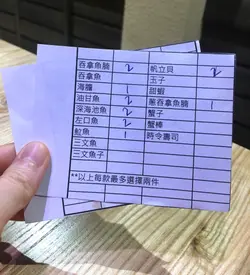 吞拿魚腩 2 帆立貝 2
吞拿魚 玉子
海膽 1 甜蝦
油甘魚 2 葱吞拿魚腩 1
深海池魚 2 蟹子
左口魚 2 蟹棒
魷魚 1 時令壽司
三文魚
三文魚子
**以上每款最多選擇兩件